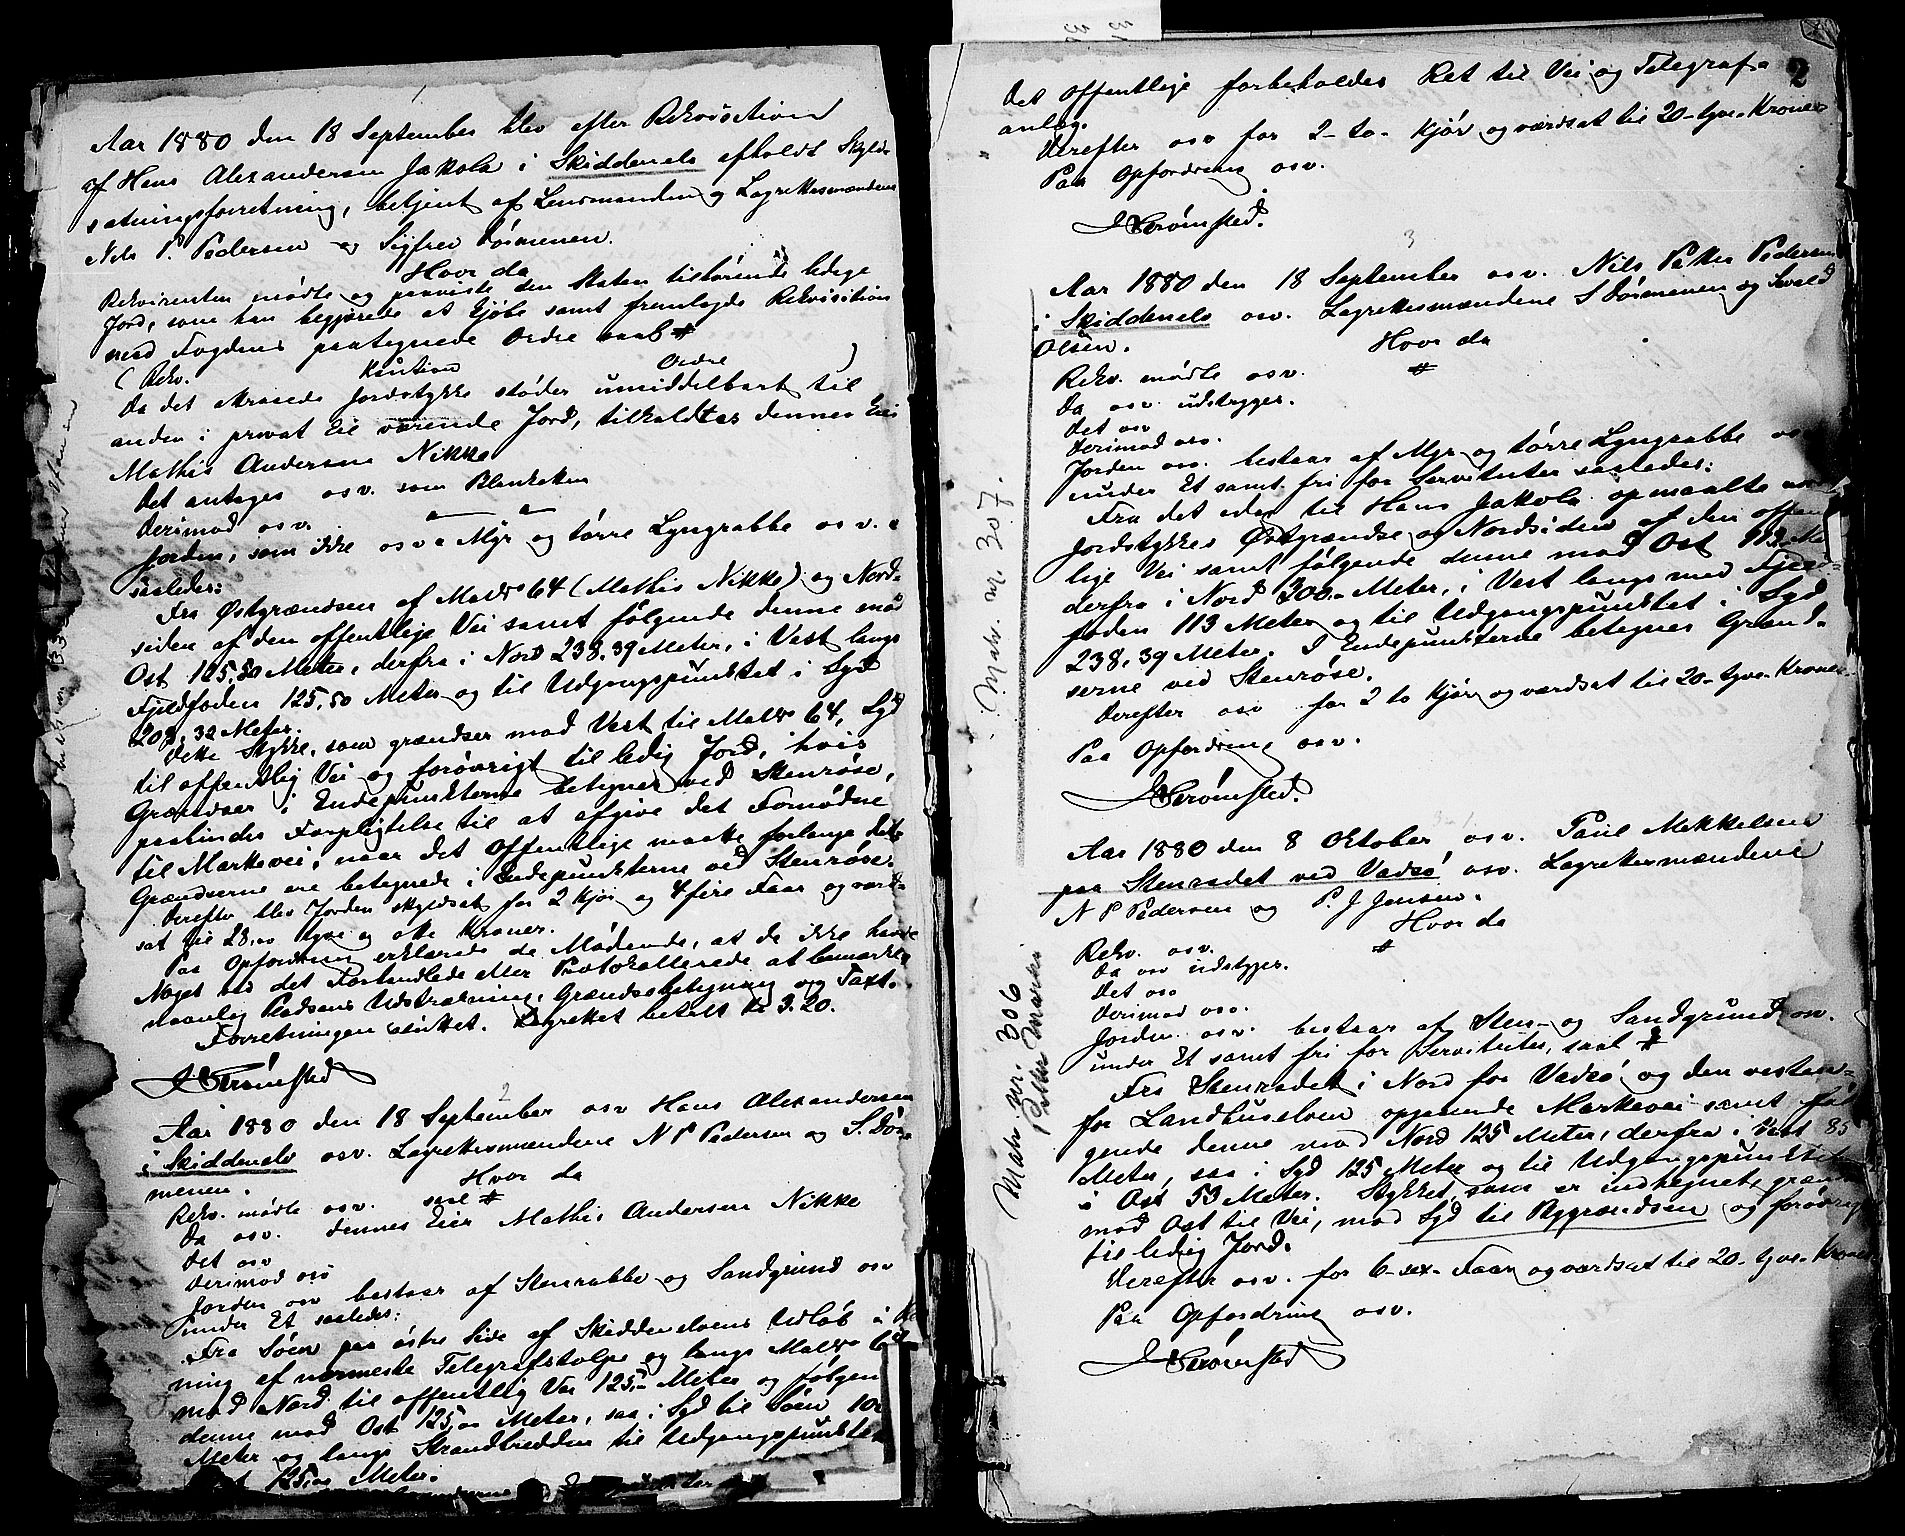 Aar 1880 den 18 September blev efter Rekvisition
af Hans Alexandersen Jakola i Skiddenelv afholdt Skyld-
sætningsforretning, betjent af Lensmanden og Lagrettesmændene
Nils P. Pedersen og Sigfred Dörmenen.
Hvor da
Rekvirenten mødte og paaviste den Staten tilhørende ledige
Jord, som han begjærede at kjøbe samt fremlagde Rekvisition
med Fogdens paategnede Ordre saal #
( Rekv. Kaution Ordre )
Da det attraaede Jordstykke støder umiddelbart til
anden i privat Eie værende Jord, tilkaldtes dennes Eier
Mathis Andersen Nikke
Det antages osv. som Blanketten
Derimod osv.
Jorden, som ikke osv. Myr og tørre Lyngrabbe osv.
saaledes:
Fra Østgrændsen af Matr 64 (Mathis Nikke) og Nord-
siden af den offentlige Vei samt følgende denne mod
Ost 125,50 Meter, derfra i Nord 238,39 Meter, i Vest langs
Fjeldfoden 125,50 Meter og til Udgangspunktet i Syd
208,32 Meter.
Dette Stykke, som grændser mod Vest til Matr 64, Syd
til offentlig Vei og forøvrigt til ledig Jord, hvis
Grændser i Endepunkterne betegnes ved Stenrøse,
paahviler Forpligtelse til at afgive det Fornødne
til Markevei, naar det Offentlige maatte forlange dette
Grændserne ere betegnede i Endepunkterne ved Stenrøse.
Derefter blev Jorden skyldsat for 2 Kjør og 4 fire Faar og værd-
sat til 28,00 tyve og otte Kroner.
Paa Opfordring erklærede de Mødende, at de ikke havde
Noget ved det Forhandlede eller Protokollerede at bemærke,
navnlig Pladsens Udstrækning, Grændsebetegning og Taxt.
Forretningen sluttet. Lagrettet betalt kr 3.20.
J Strømsted
2
Aar 1880 den 18 September osv Hans Alexandersen
i Skiddenelv osv. Lagrettesmændene N P Pedersen og S. Dör-
menen.
Hvor da
Rekv. mødte osv. saal #
Da osv. dennes Eier Mathis Andersen Nikke
Det osv
Derimod osv
Jorden osv bestaar af Stenrabbe og Sandgrund osv
under Et saaledes:
Fra Søen paa østre Side af Skiddenelvens Udløb i
ning af nærmeste Telegrafstolpe og langs Matr 64
mod Nord til offentlig Vei 125,- Meter og følgen
denne mod Ost 125,00 Meter, saa i Syd til Søen 10
Meter og langs Strandbredden til Udgangspunktet
125,00 Meter.
2
Det offentlige forbeholdes Ret til Vei og Telegraf-
anlæg.
Derefter osv for 2- to- Kjør og værdsat til 20- tyve- Kroner
Paa Opfordring osv.
J Strømsted.
3
Aar 1880 den 18 September osv. Nils Petter Pedersen
i Skiddenelv osv. Lagrettesmændene S Dörmenen og Sivald
Olsen.
Hvor da
Rekv. mødte osv. #
Da osv udstryges.
Det osv
Derimod osv.
Jorden osv. bestaar af Myr og tørre Lyngrabbe os
under Et samt fri for Servituter saaledes:
Fra det idag til Hans Jakola opmaalte
Jordstykkes Østgrændse og Nordsiden af den offent
lige Vei samt følgende denne mod Ost 113 Me
derfra i Nord 300.- Meter, i Vest langs med Fjeld-
foden 113 Meter og til Udgangspunktet i Syd
238,39 Meter. I Endepunkterne betegnes Grænd-
serne ved Stenrøse.
Derefter osv for 2 to Kjør og værdsat til 20- tyve- Kroner.
Paa Opfordring osv.
J Strømsted.
Matr. nr. 307.
Aar 1880 den 8 Oktober osv. Paul Mekkelsen
paa Stensadet ved Vadsø osv. Lagrettesmændene
N P Pedersen og P. J. Jensen.
Hvor da
Rekv. osv. #
Da osv udstryges.
Det osv
Derimod osv.
Jorden osv. bestaar af Sten- og Sandgrund osv.
under Et samt fri for Servituter, saal #
Fra Stensadet i Nord for Vadsø og den vesten-
for Landhuselven opgaaende Markevei samt føl
gende denne mod Nord 125 Meter, derfra i Vest 85
Meter, saa i Syd 125 Meter og til Udgangspunktet
i Ost 53 Meter. Stykket, som er indhegnet, grænd
mod Ost til Vei, mod Syd til Bygrændsen og forøvrigt
til ledig Jord.
Derefter osv. for 6- sex- Faar og værdsat til 20- tyve- Kroner
Paa Opfordring osv.
J Strømsted
Matr. nr. 306